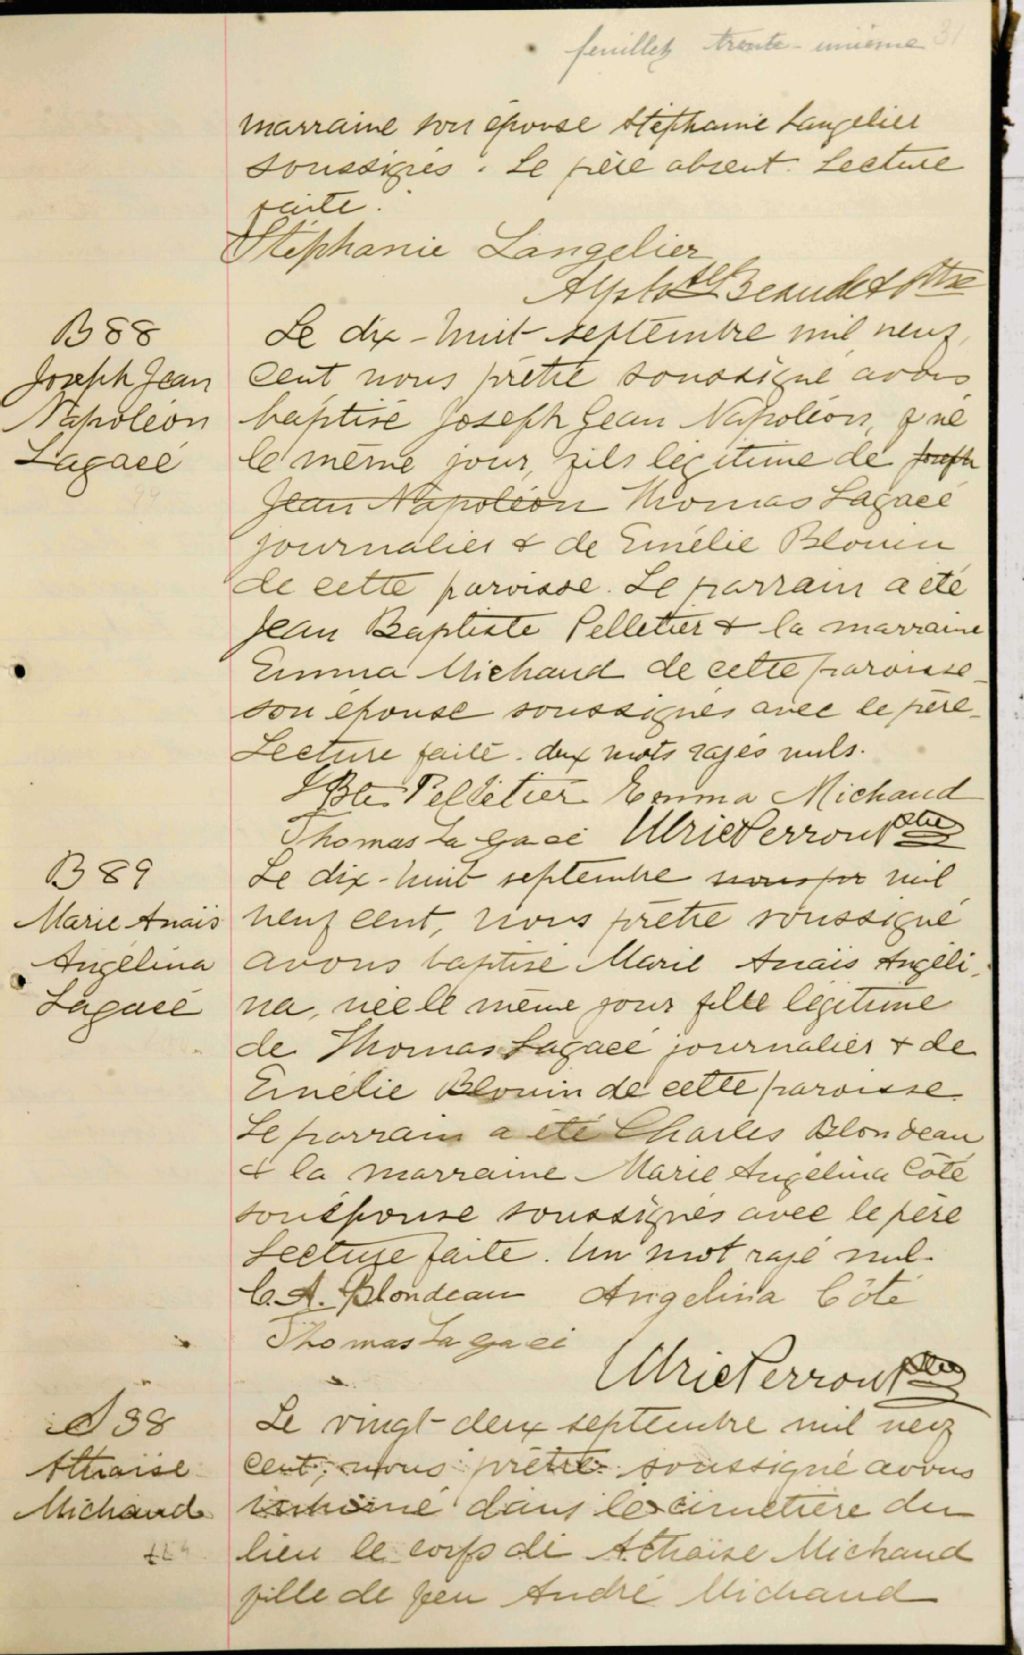 feuillet trente-unième 31
marraine son épouse Stéphanie Langelier
soussignés. Le père absent. Lecture
faite.
Stéphanie Langelier
Alph. Beaudet Ptre
B 88
Joseph Jean
Napoléon
Lagacé
Le dix-huit septembre mil neuf
cent nous prêtre soussigné avons
baptisé Joseph Jean Napoléon, né
le même jour, fils légitime de Joseph
Jean Napoléon Thomas Lagacé
journalier & de Emélie Blouin
de cette paroisse. Le parrain a été
Jean Baptiste Pelletier & la marraine
Emma Michaud de cette paroisse
son épouse soussignés avec le père.
Lecture faite. deux mots rayés nuls.
J Bte Pelletier Emma Michaud
Thomas Lagacé Ulric Perron Ptre
B 89
Marie Anaïs
Angélina
Lagacé
Le dix-huit septembre mil
neuf cent, nous prêtre soussigné
avons baptisé Marie Anaïs Angéli-
na, née le même jour fille légitime
de Thomas Lagacé journalier & de
Emélie Blouin de cette paroisse.
Le parrain a été Charles Blondeau
& la marraine Marie Angélina Côté
son épouse soussignés avec le père
Lecture faite. Un mot rayé nul.
C. A. Blondeau Angelina Côté
Thomas Lagacé
Ulric Perron Ptre
S 38
Athaïse
Michaud
Le vingt-deux septembre mil neuf
cent, nous prêtre soussigné avons
inhumé dans le cimetière du
lieu le corps de Athaïse Michaud
fille de feu André Michaud